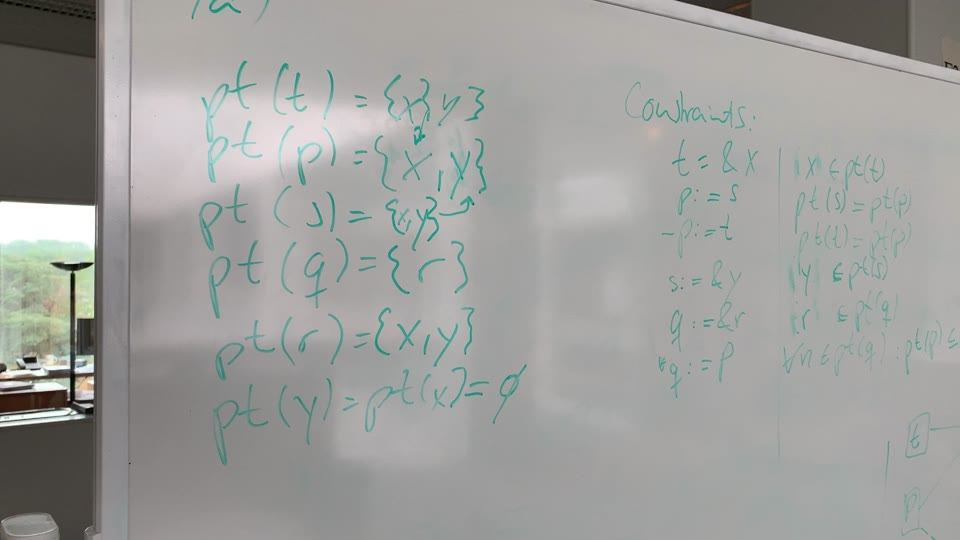 pt(t) = {x, y}
pt(p) = {x, y}
pt(s) = {x, y}
pt(q) = {r}
pt(r) = {x, y}
pt(y) = pt(x) = ∅
Constraints:
t = &x
p := s
p := t
s := &y
q := &r
*q := p
x ∈ pt(t)
pt(s) = pt(p)
pt(t) = pt(p)
y ∈ pt(s)
r ∈ pt(q)
∀n ∈ pt(q) : pt(p) ⊆
t
p